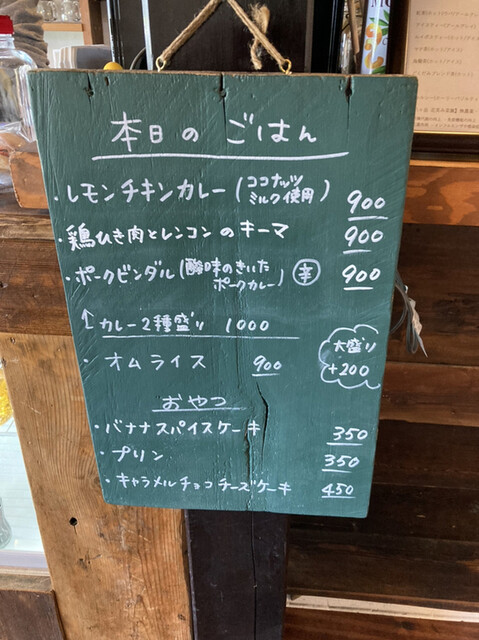 本日の ごはん
・レモンチキンカレー(ココナッツミルク使用) 900
・鶏ひき肉とレンコンのキーマ 900
・ポークビンダル(酸味のきいたポークカレー) 辛 900
↑カレー2種盛り 1000
・オムライス 900
大盛り
+200
おやつ
・バナナスパイスケーキ 350
・プリン 350
・キャラメルチョコチーズケーキ 450